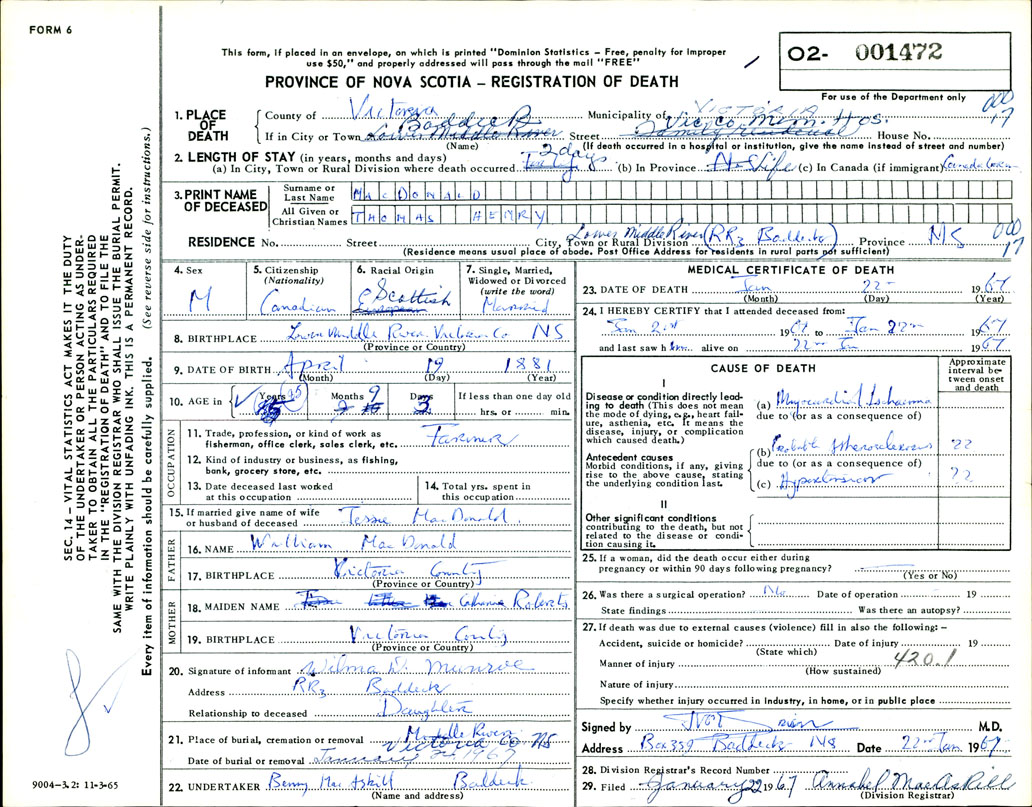 FORM 6
This form, if placed in an envelope, on which is printed "Dominion Statistics – Free, penalty for improper
use $50," and properly addressed will pass through the mail "FREE"
PROVINCE OF NOVA SCOTIA – REGISTRATION OF DEATH
O2- 001472
For use of the Department only
1. PLACE OF DEATH
County of Victoria Municipality of VICTORIA
Baddeck Vic. Co. Mem. Hos.
If in City or Town Lower Middle River Street Family residence House No.
(Name) (If death occurred in a hospital or institution, give the name instead of street and number)
2. LENGTH OF STAY (in years, months and days)
2 days
(a) In City, Town or Rural Division where death occurred (b) In Province Life (c) In Canada (if immigrant)
3. PRINT NAME OF DECEASED
Surname or Last Name MACDONALD
All Given or Christian Names THOMAS HENRY
RESIDENCE No. Street City, Town or Rural Division Lower Middle River (RR3 Baddeck) Province NS
(Residence means usual place of abode. Post Office Address for residents in rural parts not sufficient)
000 17
000 17
4. Sex M
5. Citizenship (Nationality) Canadian
6. Racial Origin Scottish
7. Single, Married, Widowed or Divorced (write the word) Married
8. BIRTHPLACE Lower Middle River Victoria Co NS
(Province or Country)
9. DATE OF BIRTH April 19 1881
(Month) (Day) (Year)
10. AGE in Years 85 Months 9 Days 3 If less than one day old
hrs. or min.
OCCUPATION
11. Trade, profession, or kind of work as
fisherman, office clerk, sales clerk, etc. Farmer
12. Kind of industry or business, as fishing,
bank, grocery store, etc.
13. Date deceased last worked
at this occupation
14. Total yrs. spent in
this occupation
15. If married give name of wife
or husband of deceased Tessie MacDonald
FATHER
16. NAME William MacDonald
17. BIRTHPLACE Victoria County
(Province or Country)
MOTHER
18. MAIDEN NAME Catherine Roberts
19. BIRTHPLACE Victoria County
(Province or Country)
20. Signature of informant Wilma D. Munroe
Address RR3 Baddeck
Relationship to deceased Daughter
21. Place of burial, cremation or removal Middle River
Victoria Co NS
Date of burial or removal January 1967
22. UNDERTAKER Benny MacAskill Baddeck
(Name and address)
MEDICAL CERTIFICATE OF DEATH
23. DATE OF DEATH Jan 22 1967
(Month) (Day) (Year)
24. I HEREBY CERTIFY that I attended deceased from:
Jan 1967 to Jan 22nd 1967
and last saw him alive on 22nd Jan 1967
CAUSE OF DEATH
Approximate interval between onset and death
I
Disease or condition directly leading to death (This does not mean the mode of dying, e.g., heart failure, asthenia, etc. It means the disease, injury, or complication which caused death.)
(a) Myocardial Ischaemia
due to (or as a consequence of)
Antecedent causes
Morbid conditions, if any, giving rise to the above cause, stating the underlying condition last.
(b) Probable Atherosclerosis ??
due to (or as a consequence of)
(c) Hypertension ??
II
Other significant conditions
contributing to the death, but not related to the disease or condition causing it.
25. If a woman, did the death occur either during
pregnancy or within 90 days following pregnancy?
(Yes or No)
26. Was there a surgical operation? No Date of operation 19
State findings Was there an autopsy?
27. If death was due to external causes (violence) fill in also the following: –
Accident, suicide or homicide? Date of injury 19
(State which)
Manner of injury 420.1
(How sustained)
Nature of injury
Specify whether injury occurred in industry, in home, or in public place
Signed by M.D.
Address Box 359 Baddeck NS Date 22nd Jan 1967
28. Division Registrar's Record Number
29. Filed January 22 1967 Annabel MacAskill
(Division Registrar)
SEC. 14 – VITAL STATISTICS ACT MAKES IT THE DUTY
OF THE UNDERTAKER OR PERSON ACTING AS UNDER-
TAKER TO OBTAIN ALL THE PARTICULARS REQUIRED
IN THE "REGISTRATION OF DEATH" AND TO FILE THE
SAME WITH THE DIVISION REGISTRAR WHO SHALL ISSUE THE BURIAL PERMIT.
WRITE PLAINLY WITH UNFADING INK. THIS IS A PERMANENT RECORD.
Every item of information should be carefully supplied. (See reverse side for instructions.)
9004–3.2: 11-3-65